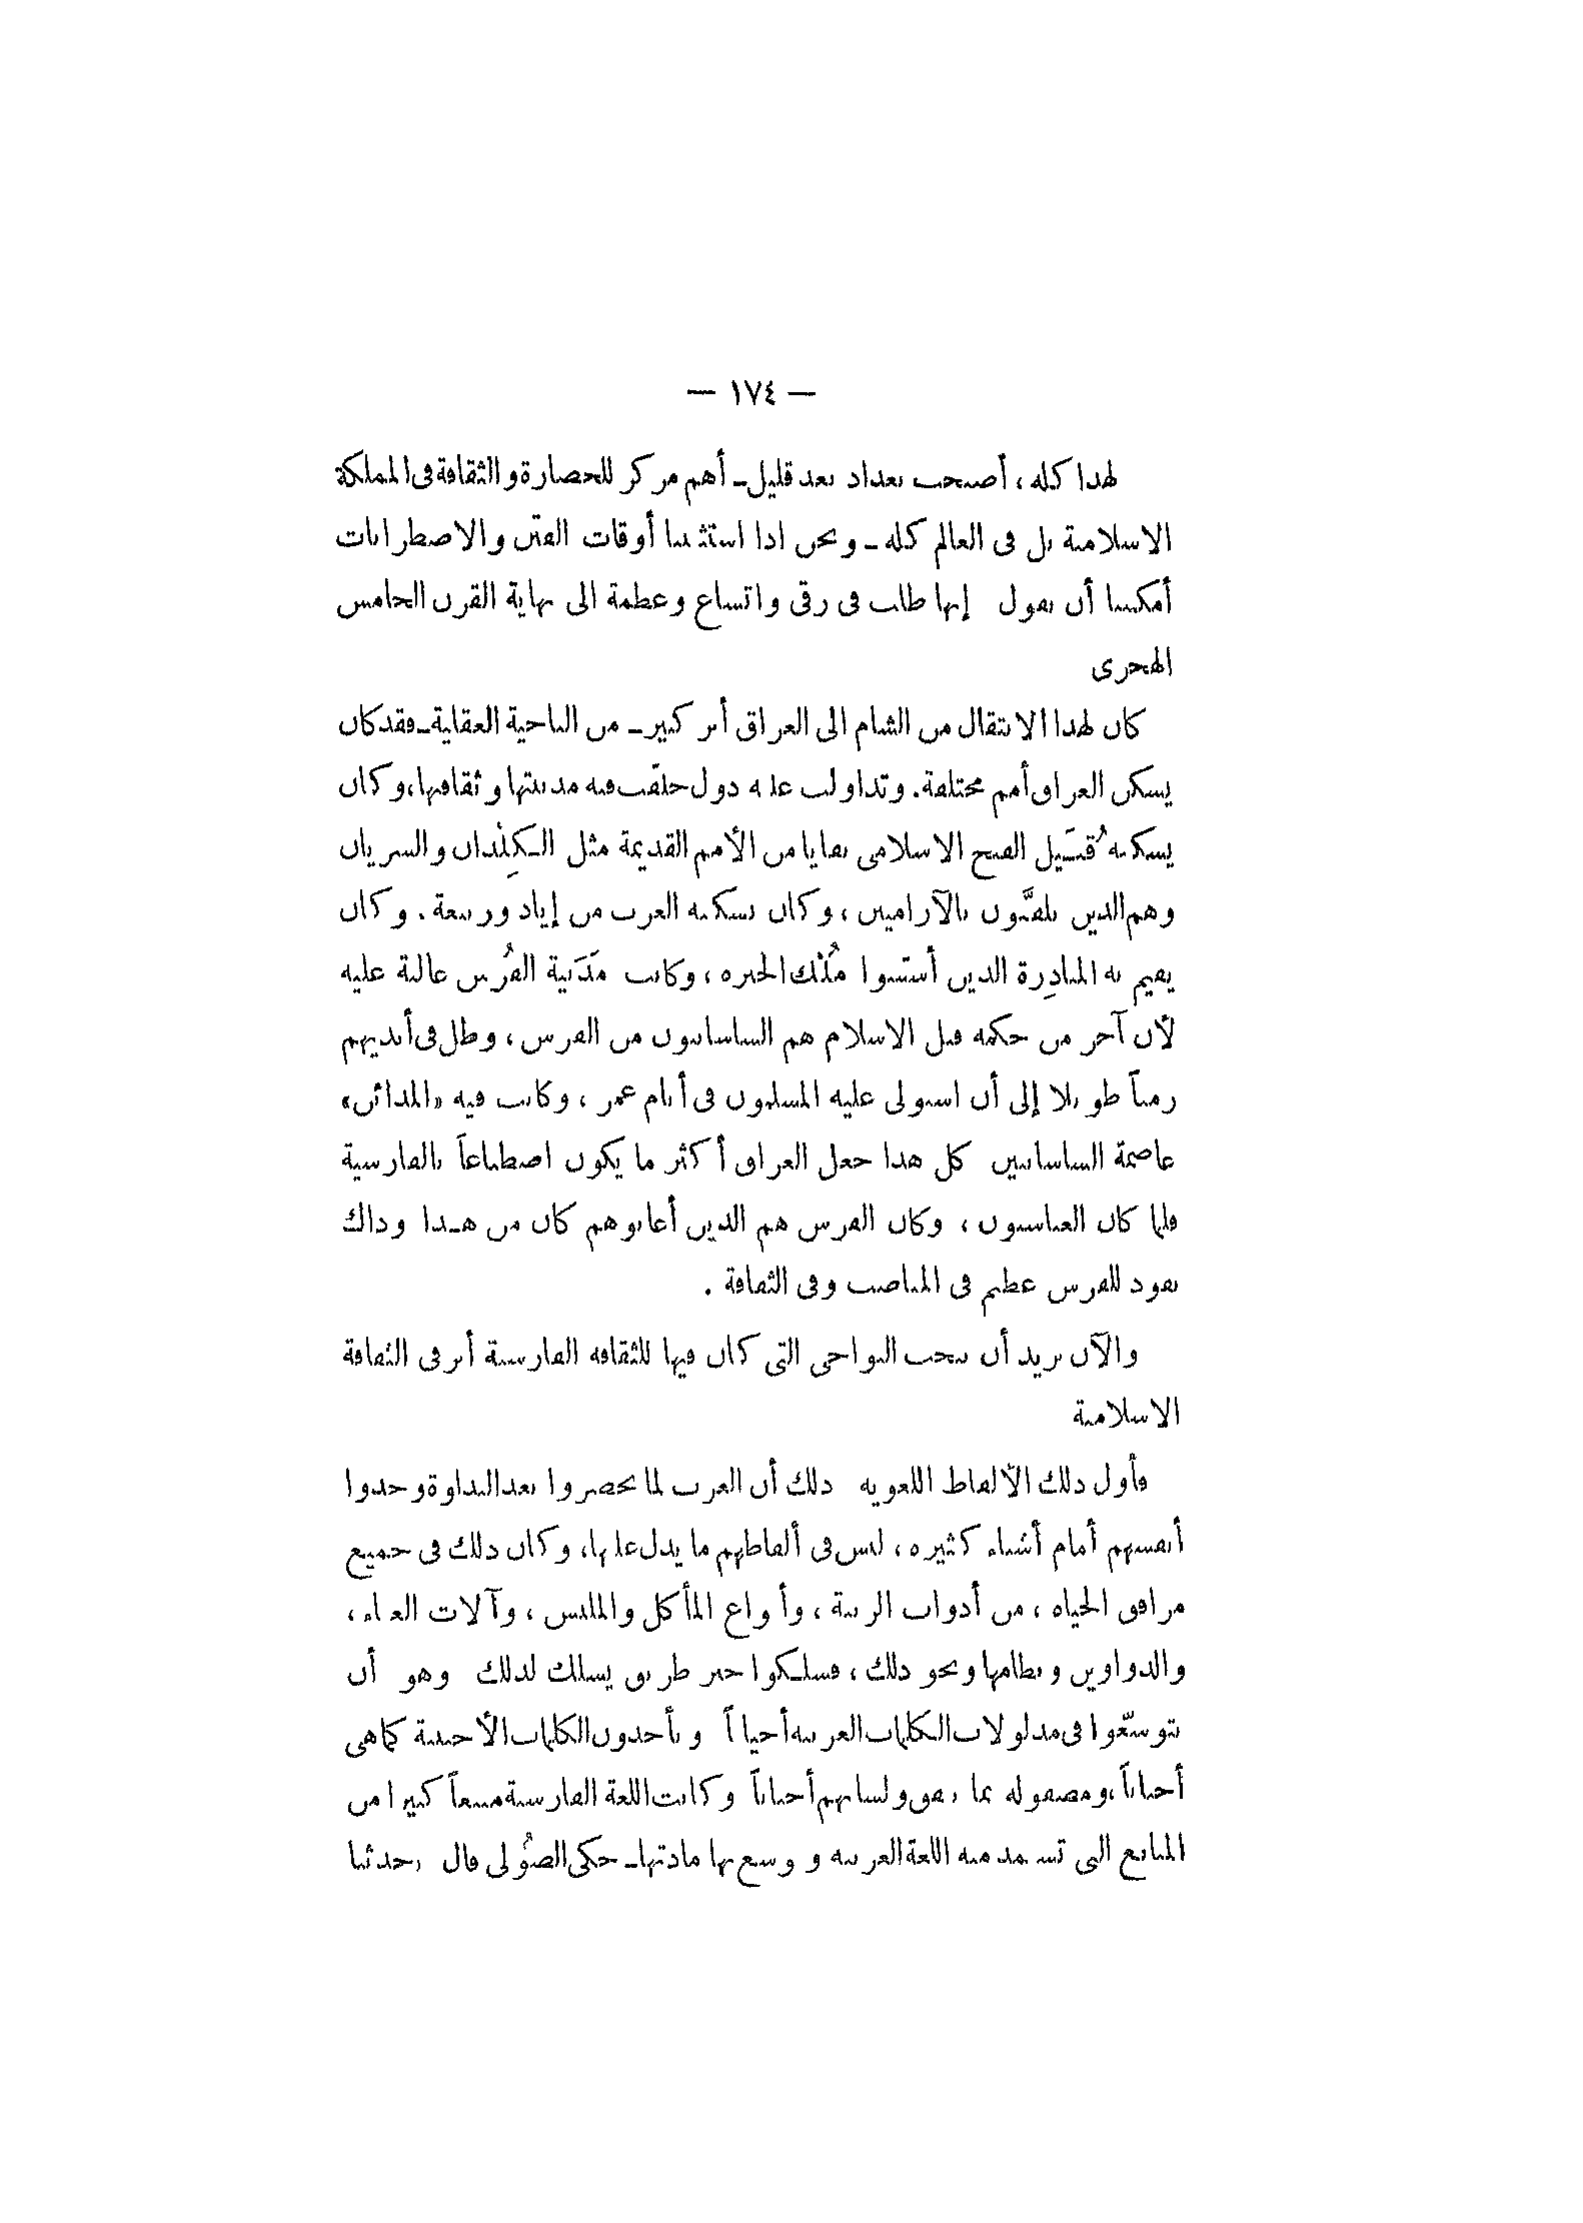 — ١٧٤ —
لهذا كله ، أصبحت بغداد بعد قليل ـ أهم مركز للحضارة والثقافة فى المملكة
الاسلامية بل فى العالم كله ـ ونحن اذا استثنينا أوقات الفتن والاضطرابات
أمكننا أن نقول إنها ظلت فى رقى واتساع وعظمة الى نهاية القرن الخامس
الهجرى
كان لهذا الانتقال من الشام الى العراق أثر كبير ـ من الناحية العقلية ـ فقد كان
يسكن العراق أمم مختلفة . وتداولت عليه دول خلفت فيه مدنيتها وثقافتها ، وكان
يسكنه قُبَيل الفتح الاسلامى بقايا من الأمم القديمة مثل الكِلْدان والسريان
وهم الذين يلقَّبون بالآراميين ، وكان يسكنه العرب من إياد وربيعة . وكان
يقيم به المناذِرة الذين أسّسوا مُلْك الحيرة ، وكانت مَدَنية الفُرْس غالبة عليه
لأن آخر من حكمه قبل الاسلام هم الساسانيون من الفرس ، وظل فى أيديهم
زمناً طويلا إلى أن استولى عليه المسلمون فى أيام عمر ، وكانت فيه «المدائن»
عاصمة الساسانيين كل هذا جعل العراق أكثر ما يكون اصطباغاً بالفارسية
فلما كان العباسيون ، وكان الفرس هم الذين أعانوهم كان من هذا وذاك
نفوذ للفرس عظيم فى المناصب وفى الثقافة .
والآن نريد أن نبحث النواحى التى كان فيها للثقافة الفارسية أثر فى الثقافة
الاسلامية
فأول ذلك الألفاظ اللغوية ذلك أن العرب لما تحضروا بعد البداوة وجدوا
أنفسهم أمام أشياء كثيرة ، ليس فى ألفاظهم ما يدل عليها ، وكان ذلك فى جميع
مرافق الحياة ، من أدوات الزينة ، وأنواع المأكل والملبس ، وآلات الغناء ،
والدواوين ونظامها ونحو ذلك ، فسلكوا خير طريق يسلك لذلك وهو أن
يتوسّعوا فى مدلولات الكلمات العربية أحياناً ويأخذون الكلمات الأجنبية كما هى
أحياناً ، ومصقولة بما يتفق ولسانهم أحياناً وكانت اللغة الفارسية منبعاً كبيرا من
المنابع التى تستمد منه اللغة العربية وتوسع بها مادتها ـ حكى الصُولى قال ، حدثنا